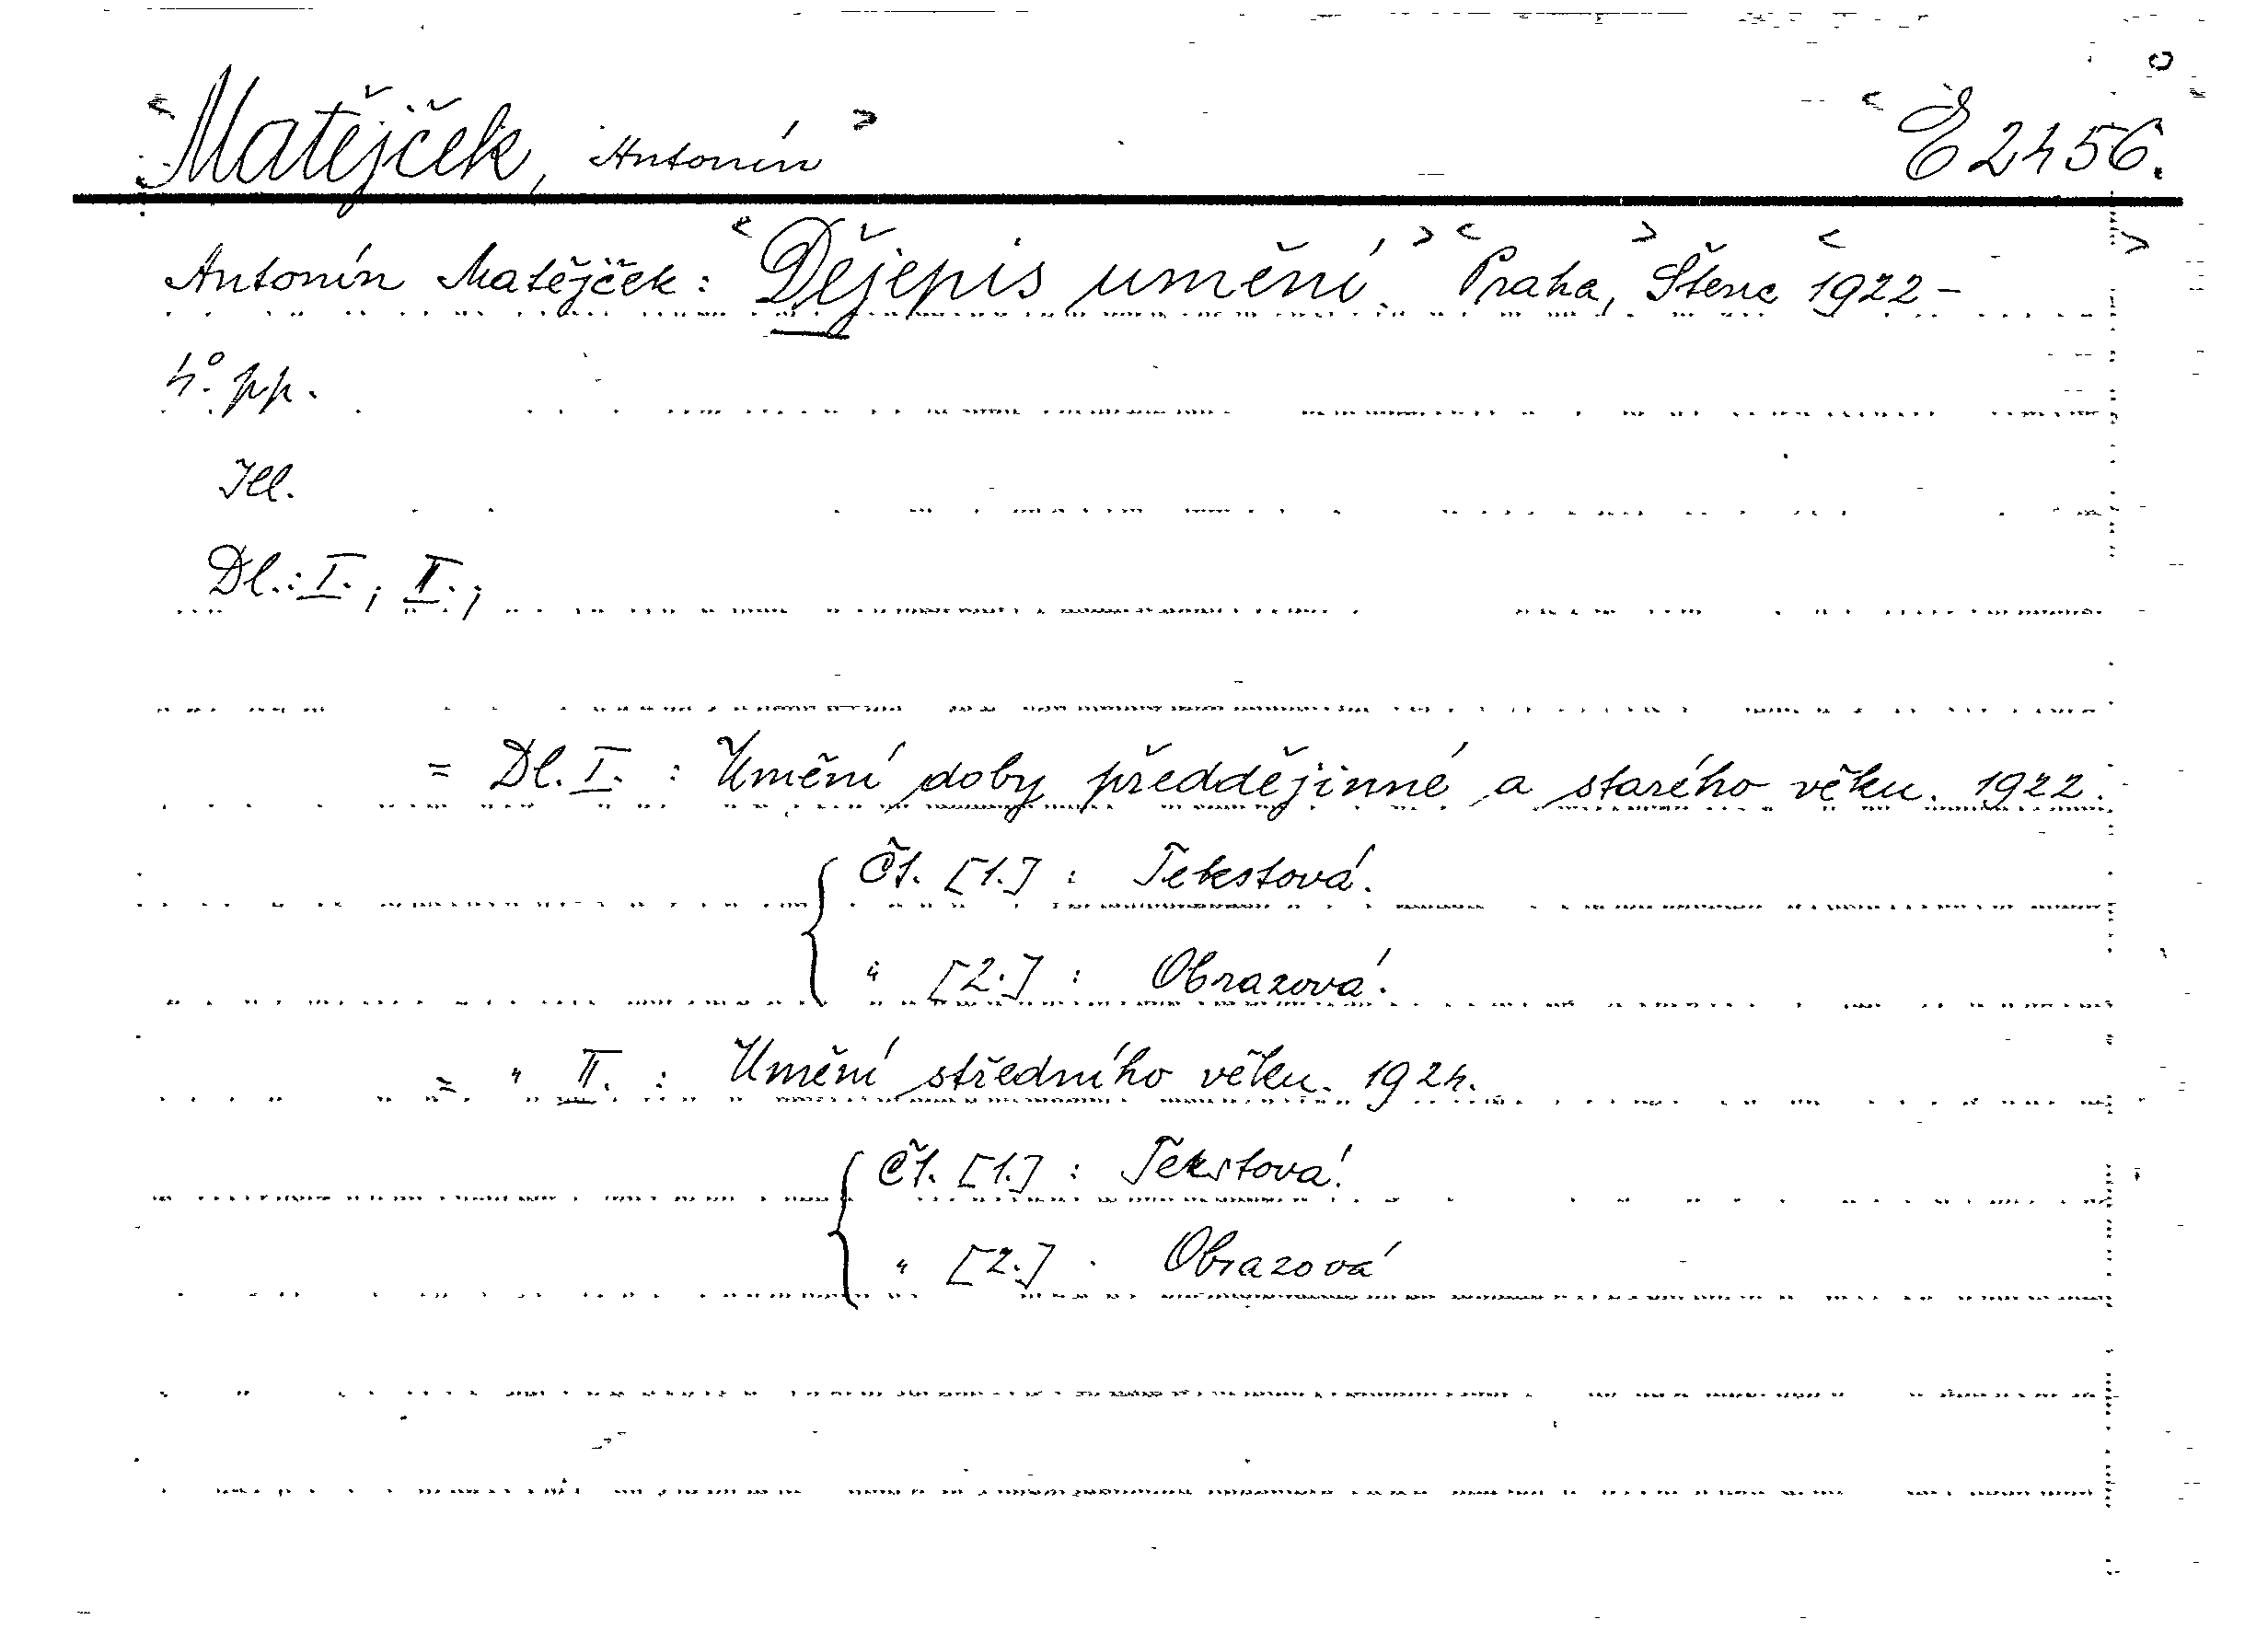 <Matějček, Antonín> <E 2456.
Antonín Matějček: <Dějepis umění.> <Praha,> Štenc <1922 - >
4°. pp.
Ill.
Dl.: I.; II.;
= Dl. I. : Umění doby předdějinné a starého věku. 1922.
Čt. [1.] : Tekstová.
" [2.] : Obrazová.
= " II. : Umění středního věku. 1924.
Čt. [1.] : Tekstová.
" [2.] . Obrazová